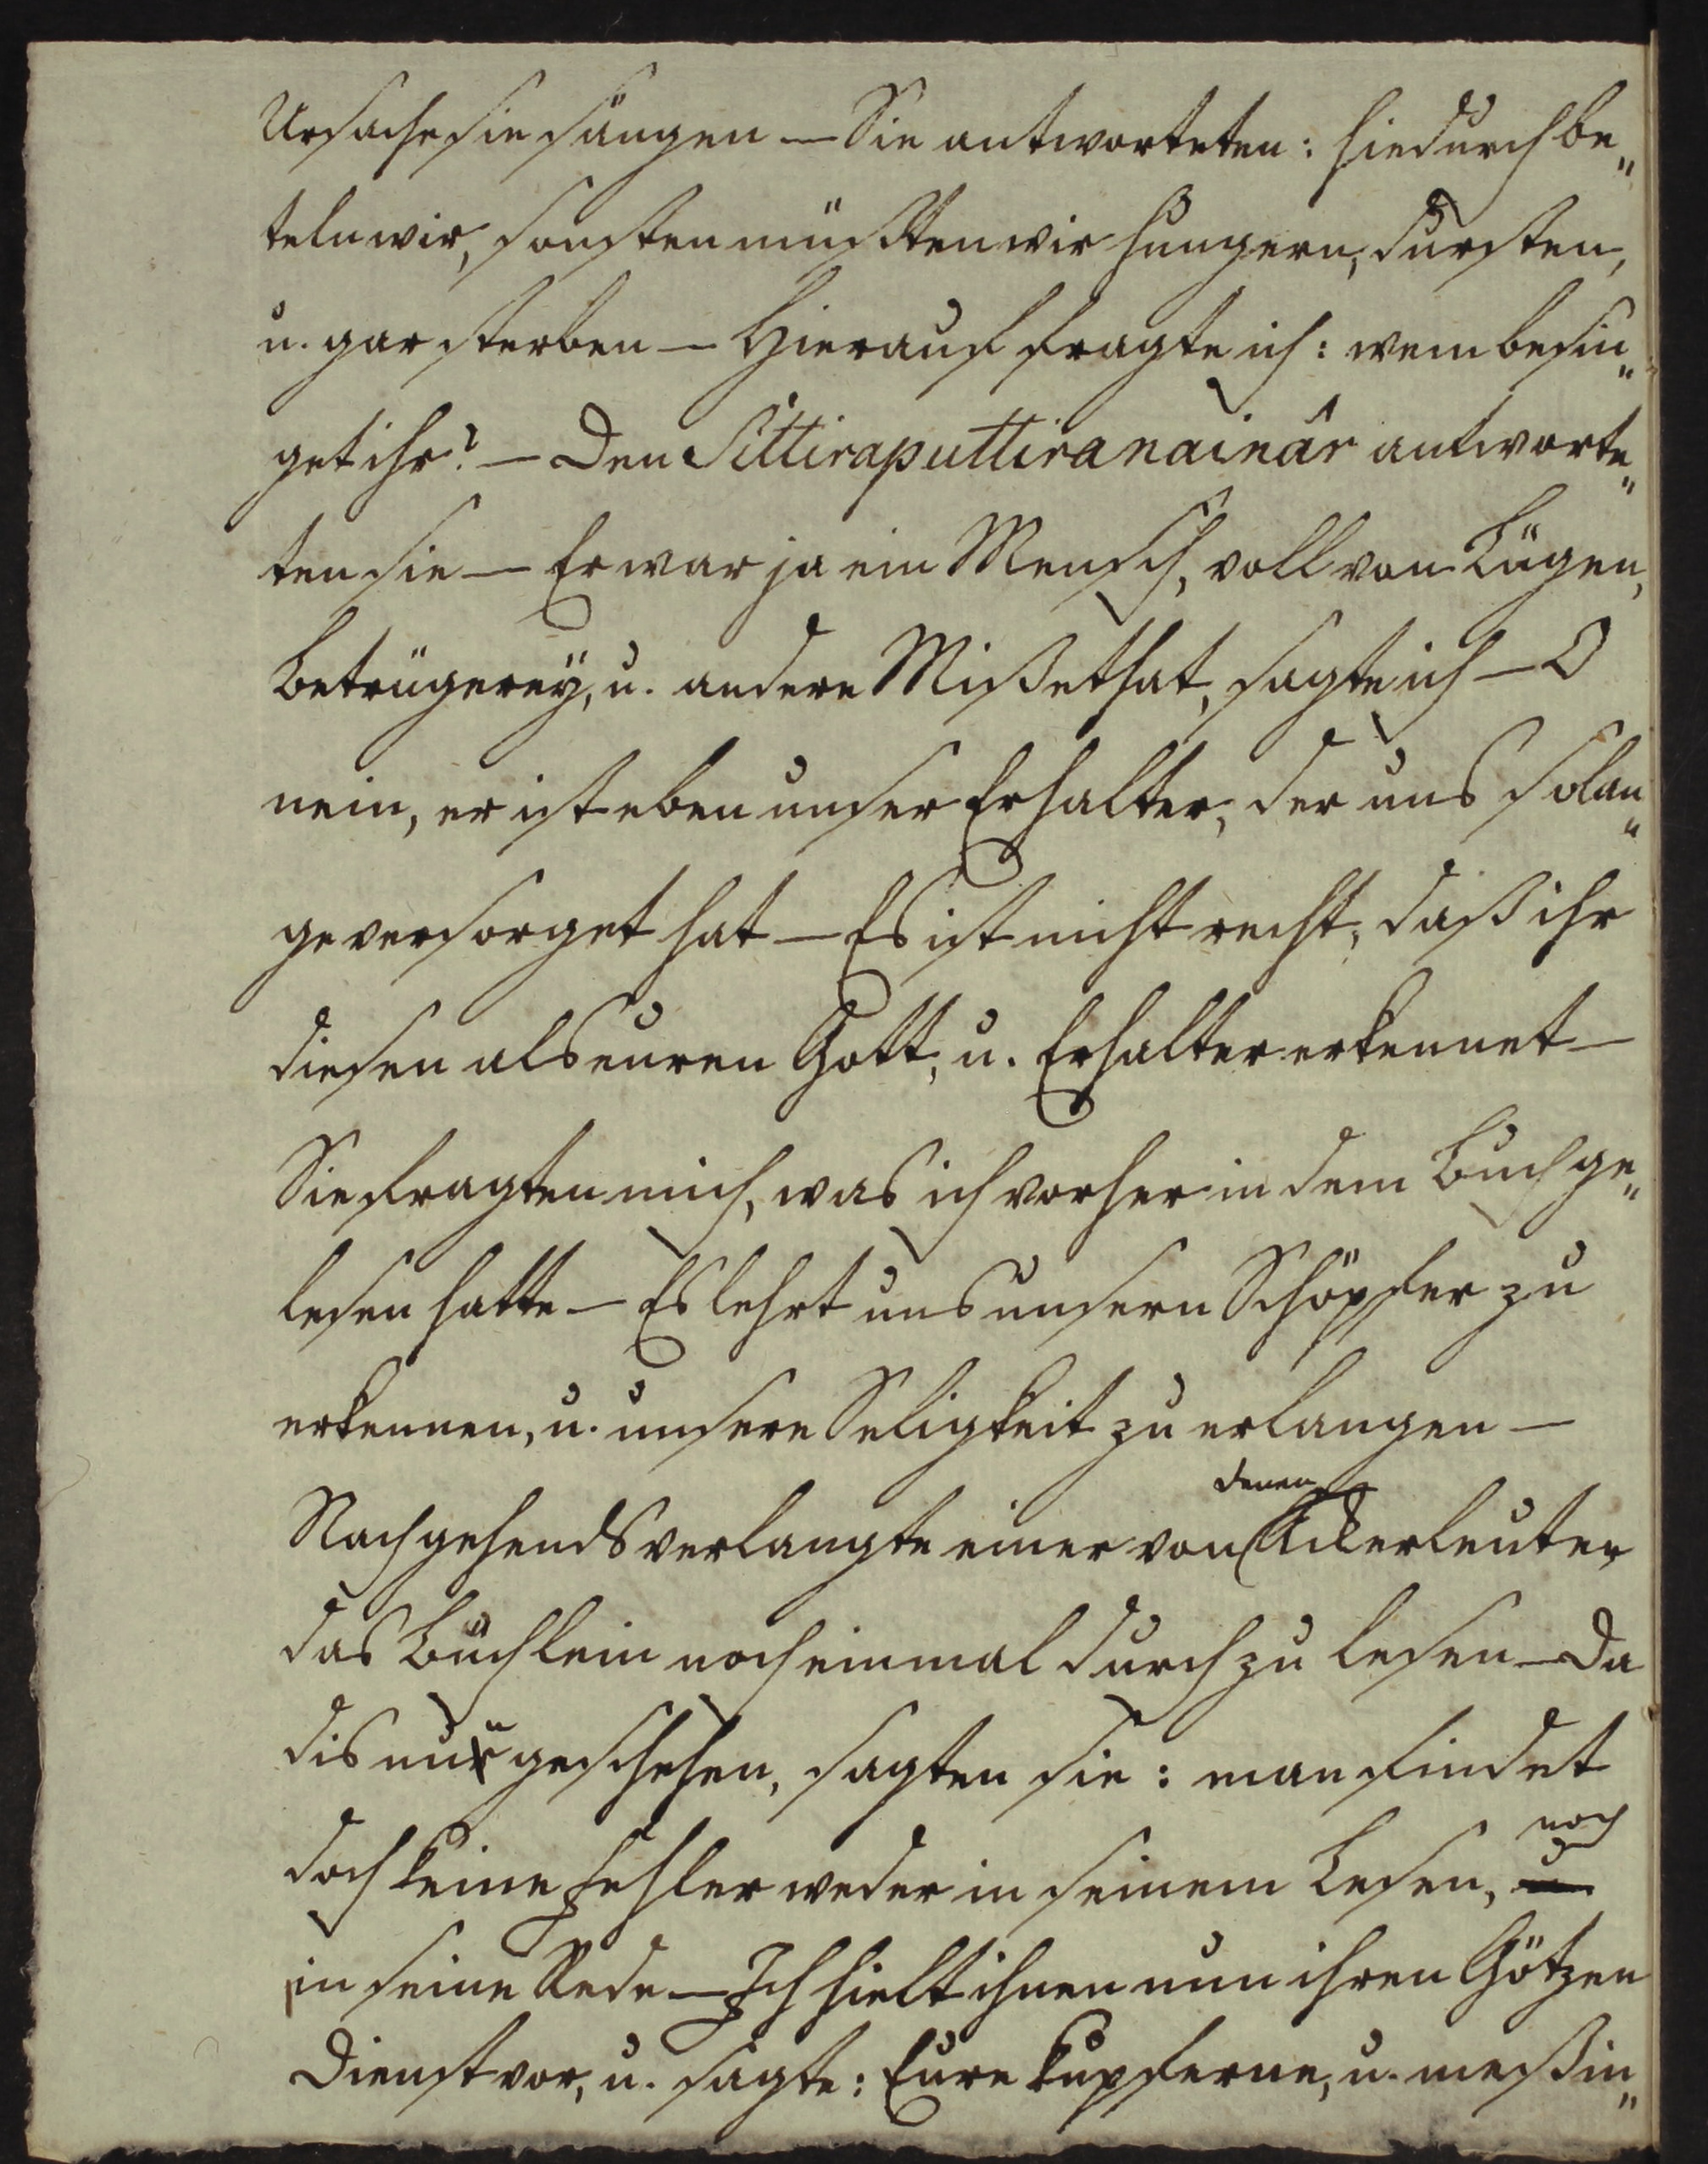 Ursache sie sängen — Sie antworteten: hiedurch be„
teln wir, sonsten müsten wir hungern, dursten,
u. gar sterben — Hierauf fragte ich: wem besin„
get ihr? — Den Sittiraputtiranainâr antworte„
ten sie — Er war ja ein Mensch, voll von Lügen,
betrügereÿ, u. andere Mißethat, sagte ich — O
nein, er ist eben unser Erhalter, der uns solan„
ge versorget hat — Es ist nicht recht, daß ihr
diesen als euren Gott, u. Erhalter erkennet —
Sie fragten mich, was ich vorher in dem Buch ge„
lesen hatte — Es lehrt uns unsern Schöpfer zu
erkennen, u. unsere Seligkeit zu erlangen —
Nachgehends verlangte einer von denen Ackerleuten
das Büchlein noch einmal durchzulesen — Da
dis nun geschehen, sagten sie: man findet
doch keine Fehler weder in seinem Lesen, noch
in seine Rede — Ich hielt ihnen nun ihren Götzen
Dienst vor, u. sagte: Eure kupferne, u. meßin„